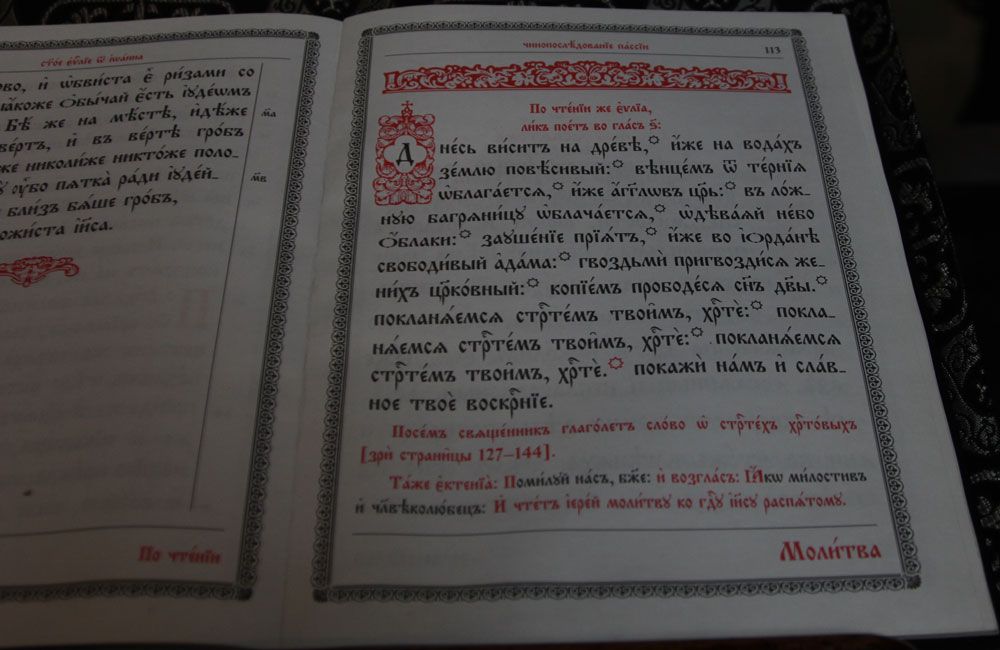 ст҃о́е є҆ѵⷢ҇лїе ѿ і҆ѡа́нна
и҆ ѡ҆бви́ста є҆̀ ри́зами со
ꙗ҆́коже ѻ҆бы́чай є҆́сть і҆ꙋде́ѡмъ
Бѣ́ же на мѣ́стѣ, и҆дѣ́же
ве́ртъ, и҆ въ ве́ртѣ гро́бъ
же николи́же никто́же поло-
ма
ᲂу҆̀бо пѧтка̀ ра́ди і҆ꙋде́й-
бли́з̾ бѧ́ше гро́бъ,
мв
і҆и҃са.
По чте́нїи
чинопослѣ́дованїе па́ссїи
113
По чте́нїи же є҆ѵⷢ҇лїа,
ли́къ пое́тъ во гла́съ ѕ҃:
Дне́сь виси́тъ на дре́вѣ, и҆́же на вода́хъ
зе́млю повѣ́сивый: вѣнце́мъ ѿ те́рнїѧ
ѡ҆блага́етсѧ, и҆́же а҆́гг҃лѡвъ цр҃ь: въ ло́ж-
нꙋю багрѧни́цꙋ ѡ҆блача́етсѧ, ѡ҆дѣва́ѧй не́бо
ѻ҆́блаки: заꙋше́нїе прїѧ́тъ, и҆́же во і҆ѻрда́нѣ
свободи́вый а҆да́ма: гвоздьмѝ пригвозди́сѧ же-
ни́хъ цр҃ко́вный: копїе́мъ прободе́сѧ сн҃ъ дв҃ы.
покланѧ́емсѧ стрⷭ҇те́мъ твои̑мъ, хрⷭ҇тѐ: покла-
нѧ́емсѧ стрⷭ҇те́мъ твои̑мъ, хрⷭ҇тѐ: покланѧ́емсѧ
стрⷭ҇те́мъ твои̑мъ, хрⷭ҇тѐ. покажѝ на́мъ и҆ сла́в-
ное твоѐ воскрⷭ҇нїе.
Посе́мъ свѧще́нникъ глаго́летъ сло́во ѡ҆ стрⷭ҇те́хъ хрⷭ҇то́выхъ
[зрѝ страни́цы 127–144].
Та́же є҆ктенїа̀: Поми́лꙋй на́съ, бж҃е: и҆ во́згласъ: Ꙗ҆́кѡ ми́лостивъ
и҆ чл҃вѣколю́бецъ: И҆ чте́тъ і҆ере́й моли́твꙋ ко гдⷭ҇ꙋ і҆и҃сꙋ распѧ́томꙋ.
Моли́тва